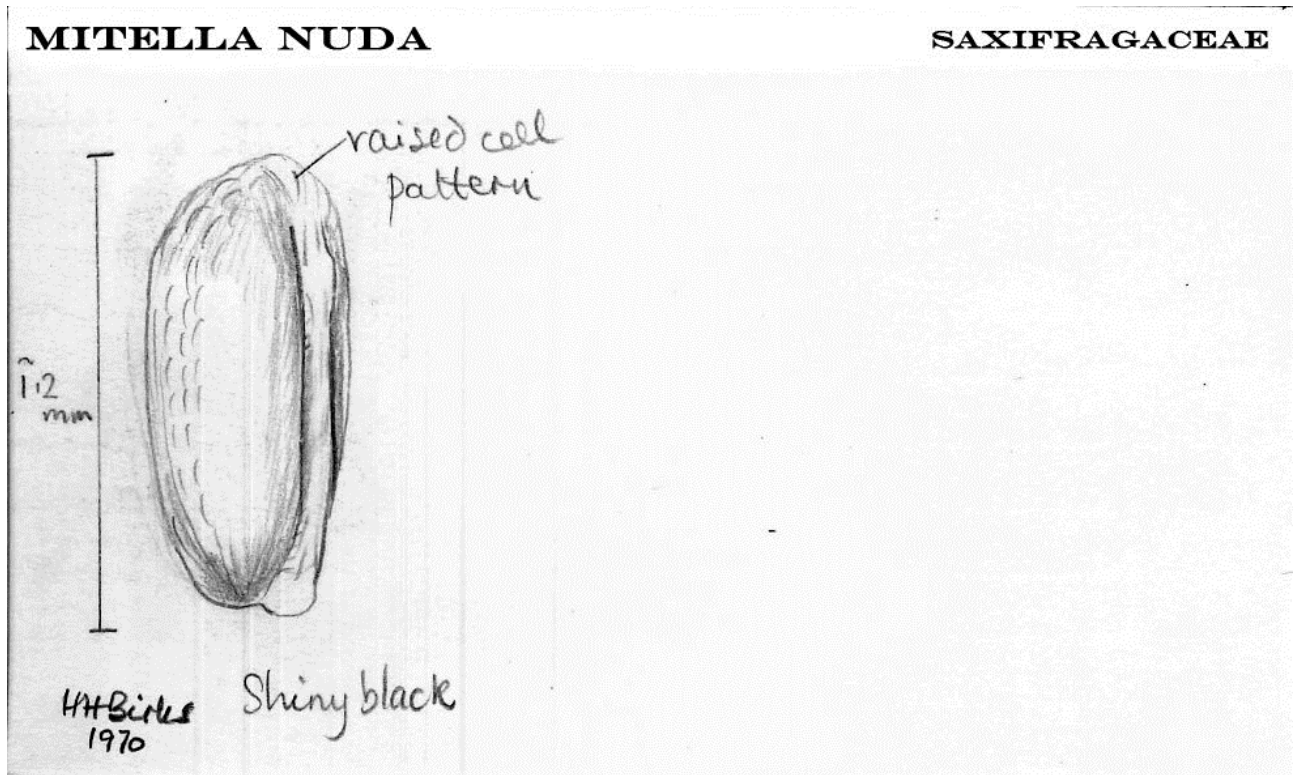 MITELLA NUDA
SAXIFRAGACEAE
raised cell
pattern
~1.2
mm
HHBirks
1970
Shiny black